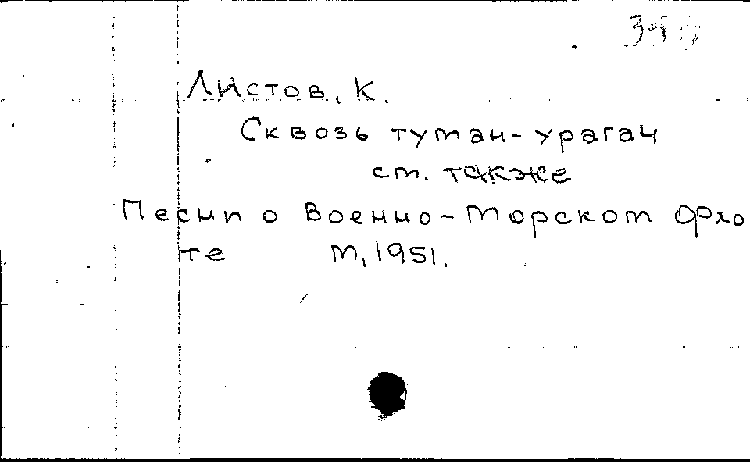 Листов, К.
Сквозь туман-ураган
см. также
Песни о Военно-Морском Фло
те М, 1951.